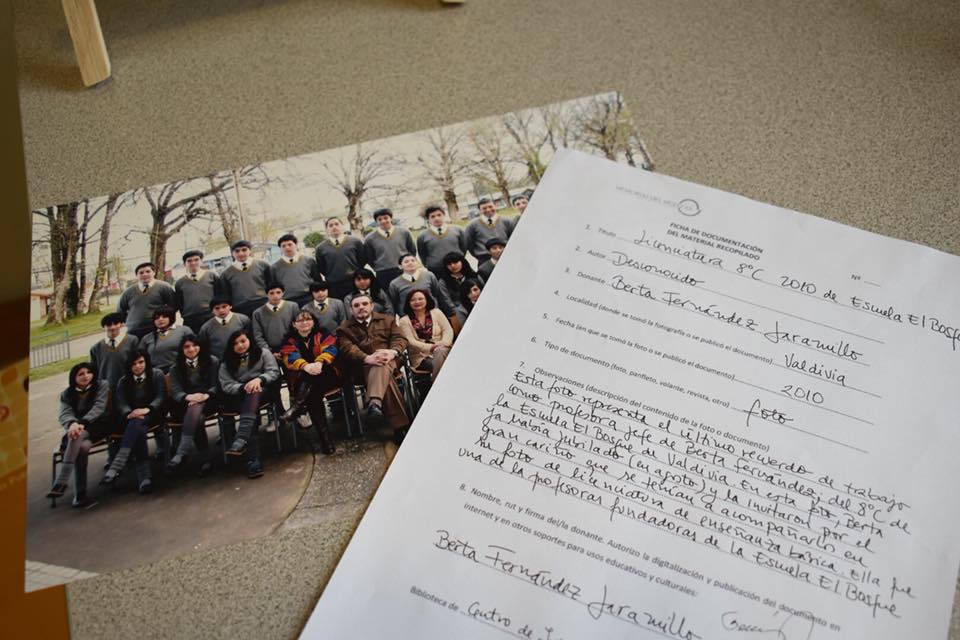 MEMORIAS DEL
FICHA DE DOCUMENTACIÓN
DEL MATERIAL RECOPILADO
Nº
1. Título Licenciatura 8ºC 2010 de Escuela El Bosque
2. Autor Desconocido
3. Donante Berta Fernández Jaramillo
4. Localidad (donde se tomó la fotografía o se publicó el documento) Valdivia
5. Fecha (en que se tomó la foto o se publicó el documento) 2010
6. Tipo de documento (foto, panfleto, volante, revista, otro) foto
7. Observaciones (descripción del contenido de la foto o documento)
Esta foto representa el último recuerdo de trabajo
como profesora jefe de Berta Fernández, del 8ºC de
la Escuela El Bosque de Valdivia. En esta foto, Berta
ya había jubilado (en agosto) y la invitaron por el
gran cariño que se tenían a acompañarlos en
su foto de licenciatura de enseñanza básica. Ella fue
una de la profesoras fundadoras de la Escuela El Bosque
8. Nombre, rut y firma del/la donante. Autorizo la digitalización y publicación del documento en
internet y en otros soportes para usos educativos y culturales:
Berta Fernández Jaramillo
Biblioteca de Centro de